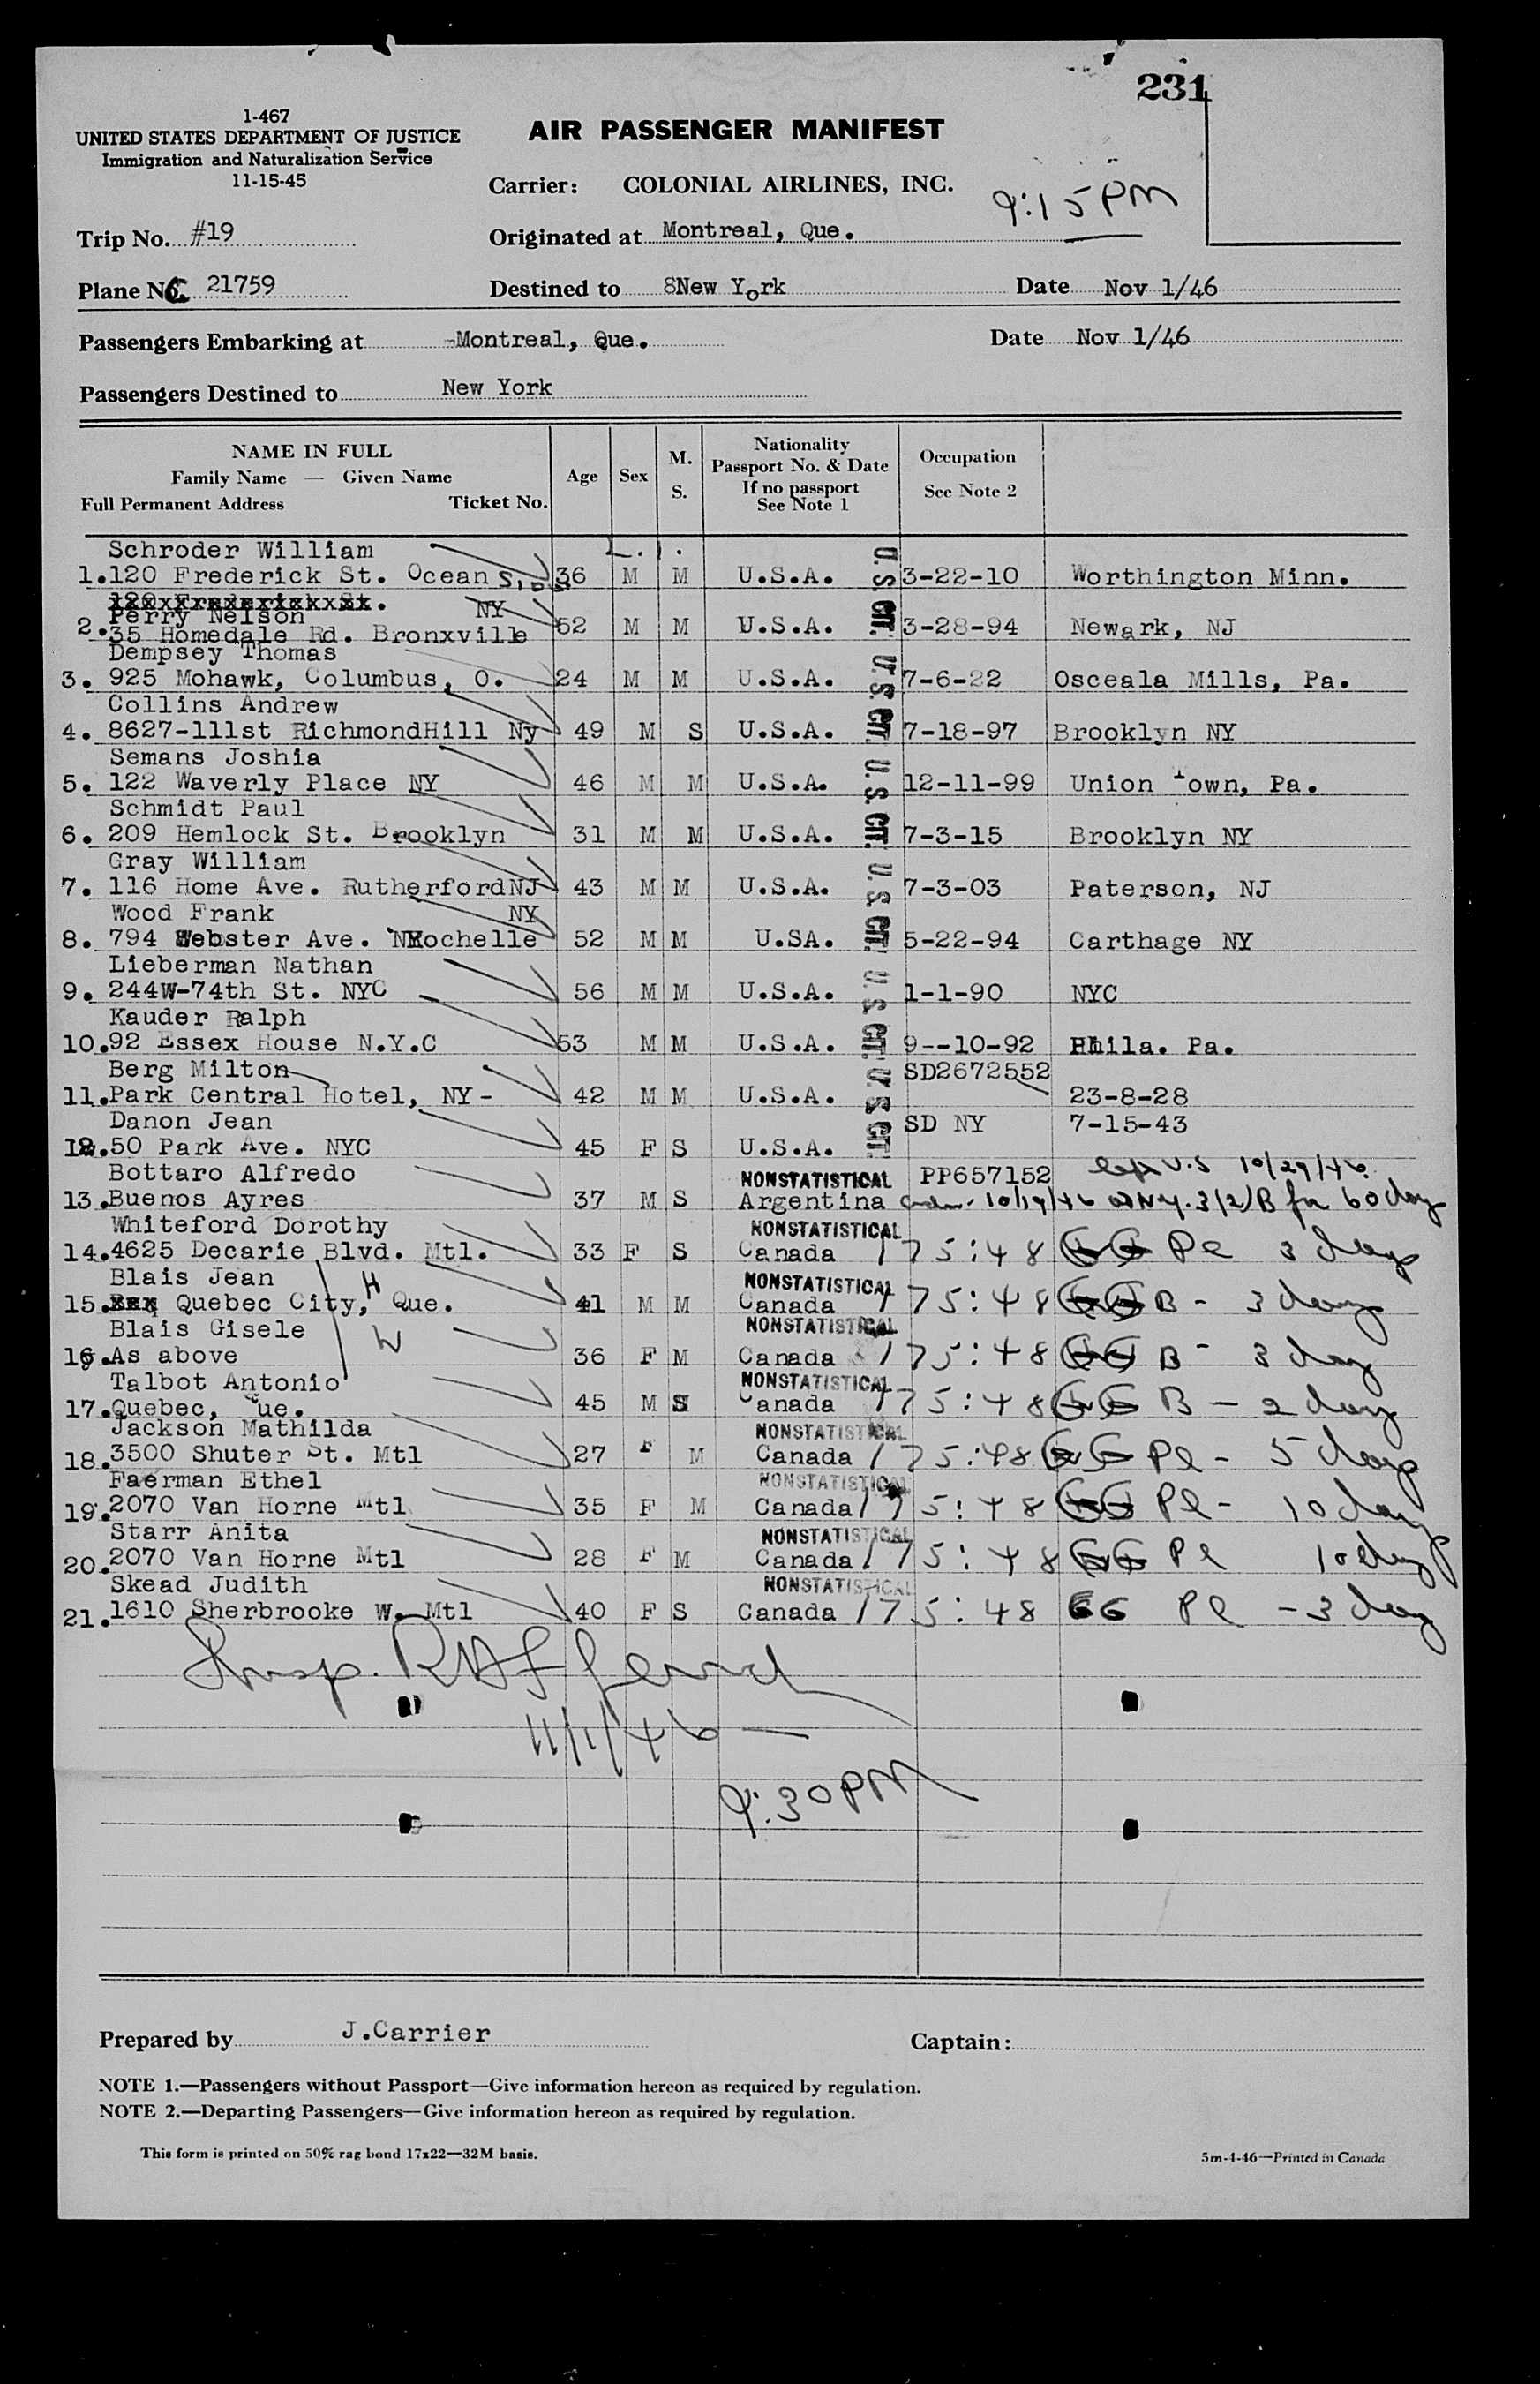 231
1-467
UNITED STATES DEPARTMENT OF JUSTICE
Immigration and Naturalization Service
11-15-45
AIR PASSENGER MANIFEST
Carrier: COLONIAL AIRLINES, INC.
9:15 PM
Trip No. #19
Originated at Montreal, Que.
Plane No. 21759
Destined to 8New York
Date Nov 1/46
Passengers Embarking at -Montreal, Que.
Date Nov 1/46
Passengers Destined to New York
NAME IN FULL
Family Name — Given Name
Full Permanent Address
Ticket No.
Age
Sex
M.
S.
Nationality
Passport No. & Date
If no passport
See Note 1
Occupation
See Note 2
Schroder William
1. 120 Frederick St. Ocean S, 36 M M U.S.A. U.S. CIT. 3-22-10 Worthington Minn.
NY
Perry Nelson
2. 35 Homedale Rd. Bronxville 52 M M U.S.A. 3-28-94 Newark, NJ
Dempsey Thomas
3. 925 Mohawk, Columbus, O. 24 M M U.S.A. U.S. CIT. 7-6-22 Osceala Mills, Pa.
Collins Andrew
4. 8627-111st RichmondHill Ny 49 M S U.S.A. 7-18-97 Brooklyn NY
Semans Joshia
5. 122 Waverly Place NY 46 M M U.S.A. U.S. CIT. 12-11-99 Union Town, Pa.
Schmidt Paul
6. 209 Hemlock St. Brooklyn 31 M M U.S.A. 7-3-15 Brooklyn NY
Gray William
7. 116 Home Ave. RutherfordNJ 43 M M U.S.A. U.S. CIT. 7-3-03 Paterson, NJ
Wood Frank NY
8. 794 Webster Ave. NRochelle 52 M M U.SA. 5-22-94 Carthage NY
Lieberman Nathan
9. 244W-74th St. NYC 56 M M U.S.A. U.S. CIT. 1-1-90 NYC
Kauder Ralph
10. 92 Essex House N.Y.C 53 M M U.S.A. 9--10-92 Phila. Pa.
Berg Milton SD2672552
11. Park Central Hotel, NY - 42 M M U.S.A. U.S. CIT. 23-8-28
Danon Jean SD NY 7-15-43
12. 50 Park Ave. NYC 45 F S U.S.A.
Bottaro Alfredo NONSTATISTICAL PP657152 U.S 10/29/46
13. Buenos Ayres 37 M S Argentina 10/19/46 NY. 3(2)B for 60 days
Whiteford Dorothy NONSTATISTICAL
14. 4625 Decarie Blvd. Mtl. 33 F S Canada 175:48 Pl 3 days
Blais Jean H NONSTATISTICAL
15. Quebec City, Que. 41 M M Canada 175:48 B - 3 days
Blais Gisele W NONSTATISTICAL
16. As above 36 F M Canada 175:48 B - 3 days
Talbot Antonio NONSTATISTICAL
17. Quebec, Que. 45 M S Canada 175:48 B - 2 days
Jackson Mathilda NONSTATISTICAL
18. 3500 Shuter St. Mtl 27 F M Canada 175:48 Pl - 5 days
Faerman Ethel NONSTATISTICAL
19. 2070 Van Horne Mtl 35 F M Canada 175:48 Pl - 10 days
Starr Anita NONSTATISTICAL
20. 2070 Van Horne Mtl 28 F M Canada 175:48 Pl 10 days
Skead Judith NONSTATISTICAL
21. 1610 Sherbrooke W. Mtl 40 F S Canada 175:48 66 Pl - 3 days
Insp.
11/1/46 —
9:30 PM
Prepared by J.Carrier
Captain:
NOTE 1.—Passengers without Passport—Give information hereon as required by regulation.
NOTE 2.—Departing Passengers—Give information hereon as required by regulation.
This form is printed on 50% rag bond 17x22—32M basis.
5m-4-46—Printed in Canada